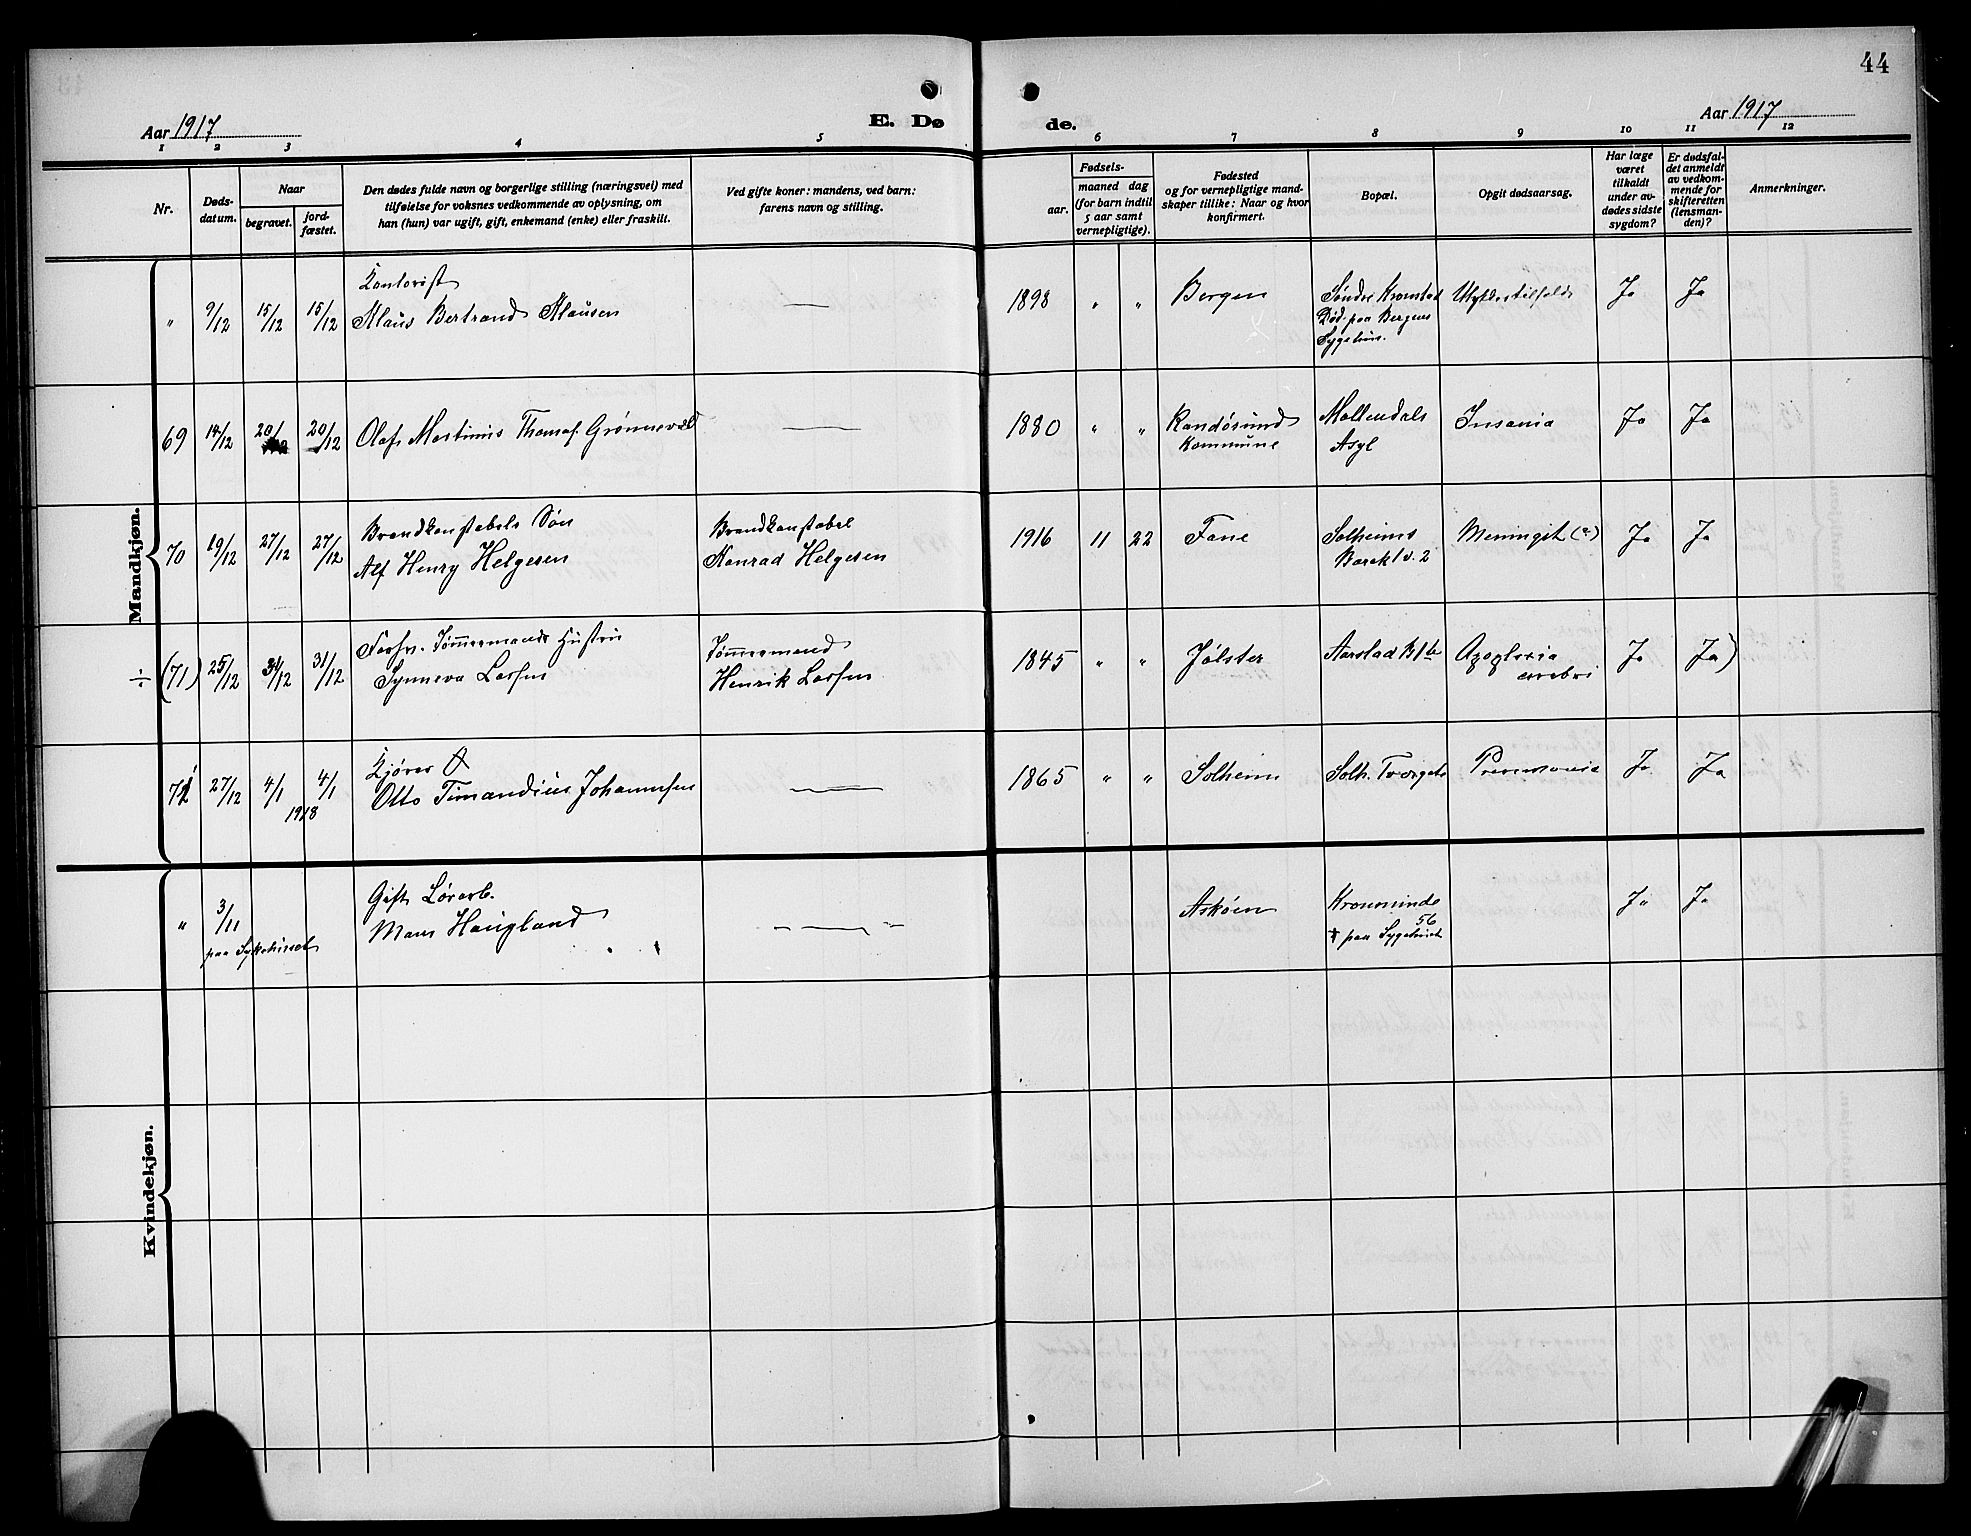 44
Aar 1917
E. Dø
de.
Aar 1917
1 2 3 4 5 6 7 8 9 10 11 12
Nr.
Døds-
datum.
Naar
begravet.
jord-
fæstet.
Den dødes fulde navn og borgerlige stilling (næringsvei) med
tilføielse for voksnes vedkommende av oplysning, om
han (hun) var ugift, gift, enkemand (enke) eller fraskilt.
Ved gifte koner: mandens, ved barn:
farens navn og stilling.
Fødsels-
aar.
maaned dag
(for barn indtil
5 aar samt
vernepligtige).
Fødested
og for vernepligtige mand-
skaper tillike: Naar og hvor
konfirmert.
Bopæl.
Opgit dødsaarsag.
Har læge
været
tilkaldt
under av-
dødes sidste
sygdom?
Er dødsfal-
det anmeldt
av vedkom-
mende for
skifteretten
(lensman-
den)?
Anmerkninger.
Mandkjøn.
" 9/12 15/12 15/12
Kontorist
Klaus Bertrand Klausen
—
1898 " "
Bergen
Søndre Kronstad
Død paa Bergens
Sygehus.
Ulykkestilfelde
Ja Ja
69 14/12 20/12 20/12
Olaf Martinus Thomas Grønnevald
—
1880 " "
Randøsund
Kommune
Møllendals
Asyl
Insania
Ja Ja
70 19/12 27/12 27/12
Brandkonstabels Søn
Alf Henry Helgesen
Brandkonstabel
Konrad Helgesen
1916 11 22
Fane
Solheims
Barak 1 v. 2
Meningit
Ja Ja
÷ (71) 25/12 31/12 31/12
Tømmermands Hustru
Synneva Larsen
Tømmermand
Henrik Larsen
1845 " "
Jølster
Aarstad
Apoplexia
cerebri
Ja Ja)
71 27/12 4/1 4/1
1918
Kjører
Otto Timandius Johannesen
—
1865 " "
Solheim
Solh. Tvergate
Pneumonia
Ja Ja
Kvindekjøn.
" 3/11
paa Sykehuset
Gift
Mons Haugland
—
Askøen
Kronminde
56
† paa Sygehuset
Ja Ja